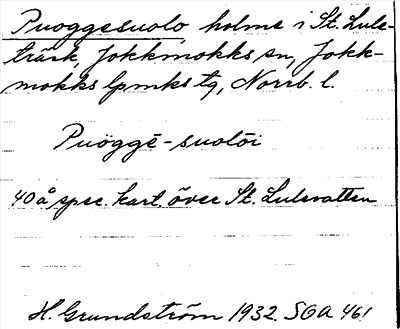 Puoggesuolo holme i St. Lule-
träsk, Jokkmokks sn, Jokk-
mokks lpmks tg, Norrb. l.
Puöggē-suolōi
40 å spec. kart. över St. Lulevatten
H. Grundström 1932. SOA 461